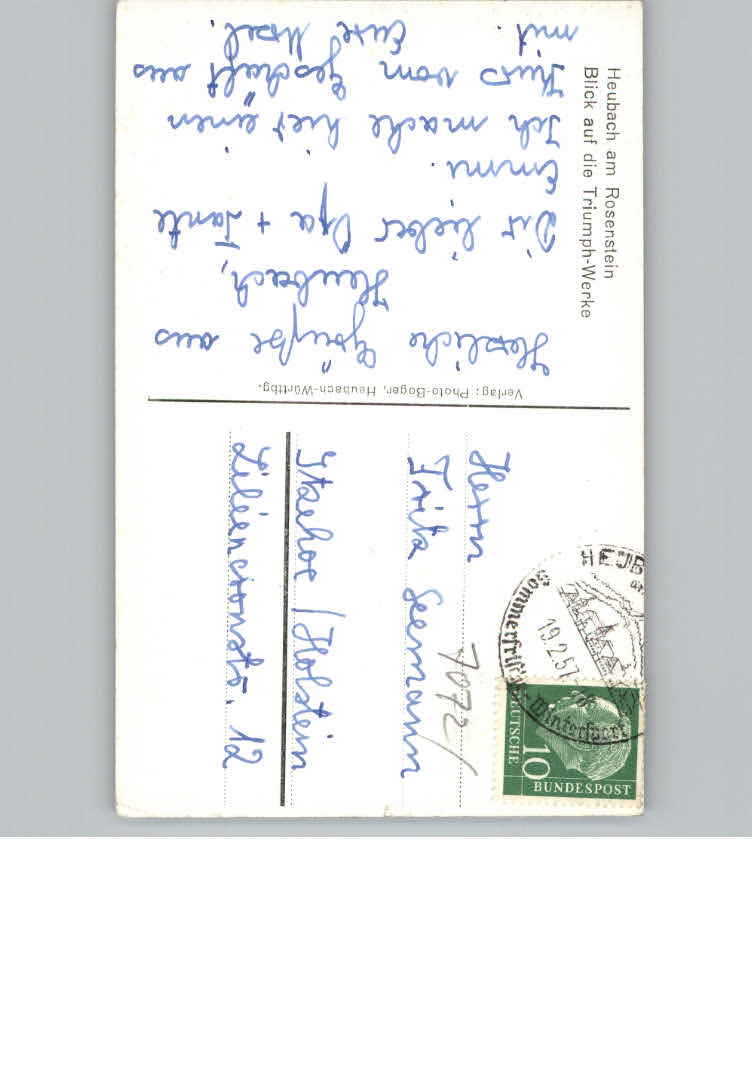 Heubach am Rosenstein
Blick auf die Triumph-Werke
Herzliche Grüße aus
Heubach,
Dir lieber Opa + Tante
Emmi.
Ich mache hier einen
Kurs vom Geschäft aus
mit. Eure
Verlag: Photo-Boger, Heubach-Württbg.
HEUB
Sommerfrische
Wintersport
19.2.57
DEUTSCHE
10
BUNDESPOST
7072/
Herrn
Fritz Seemann
Itzehoe / Holstein
Liliencronstr. 12